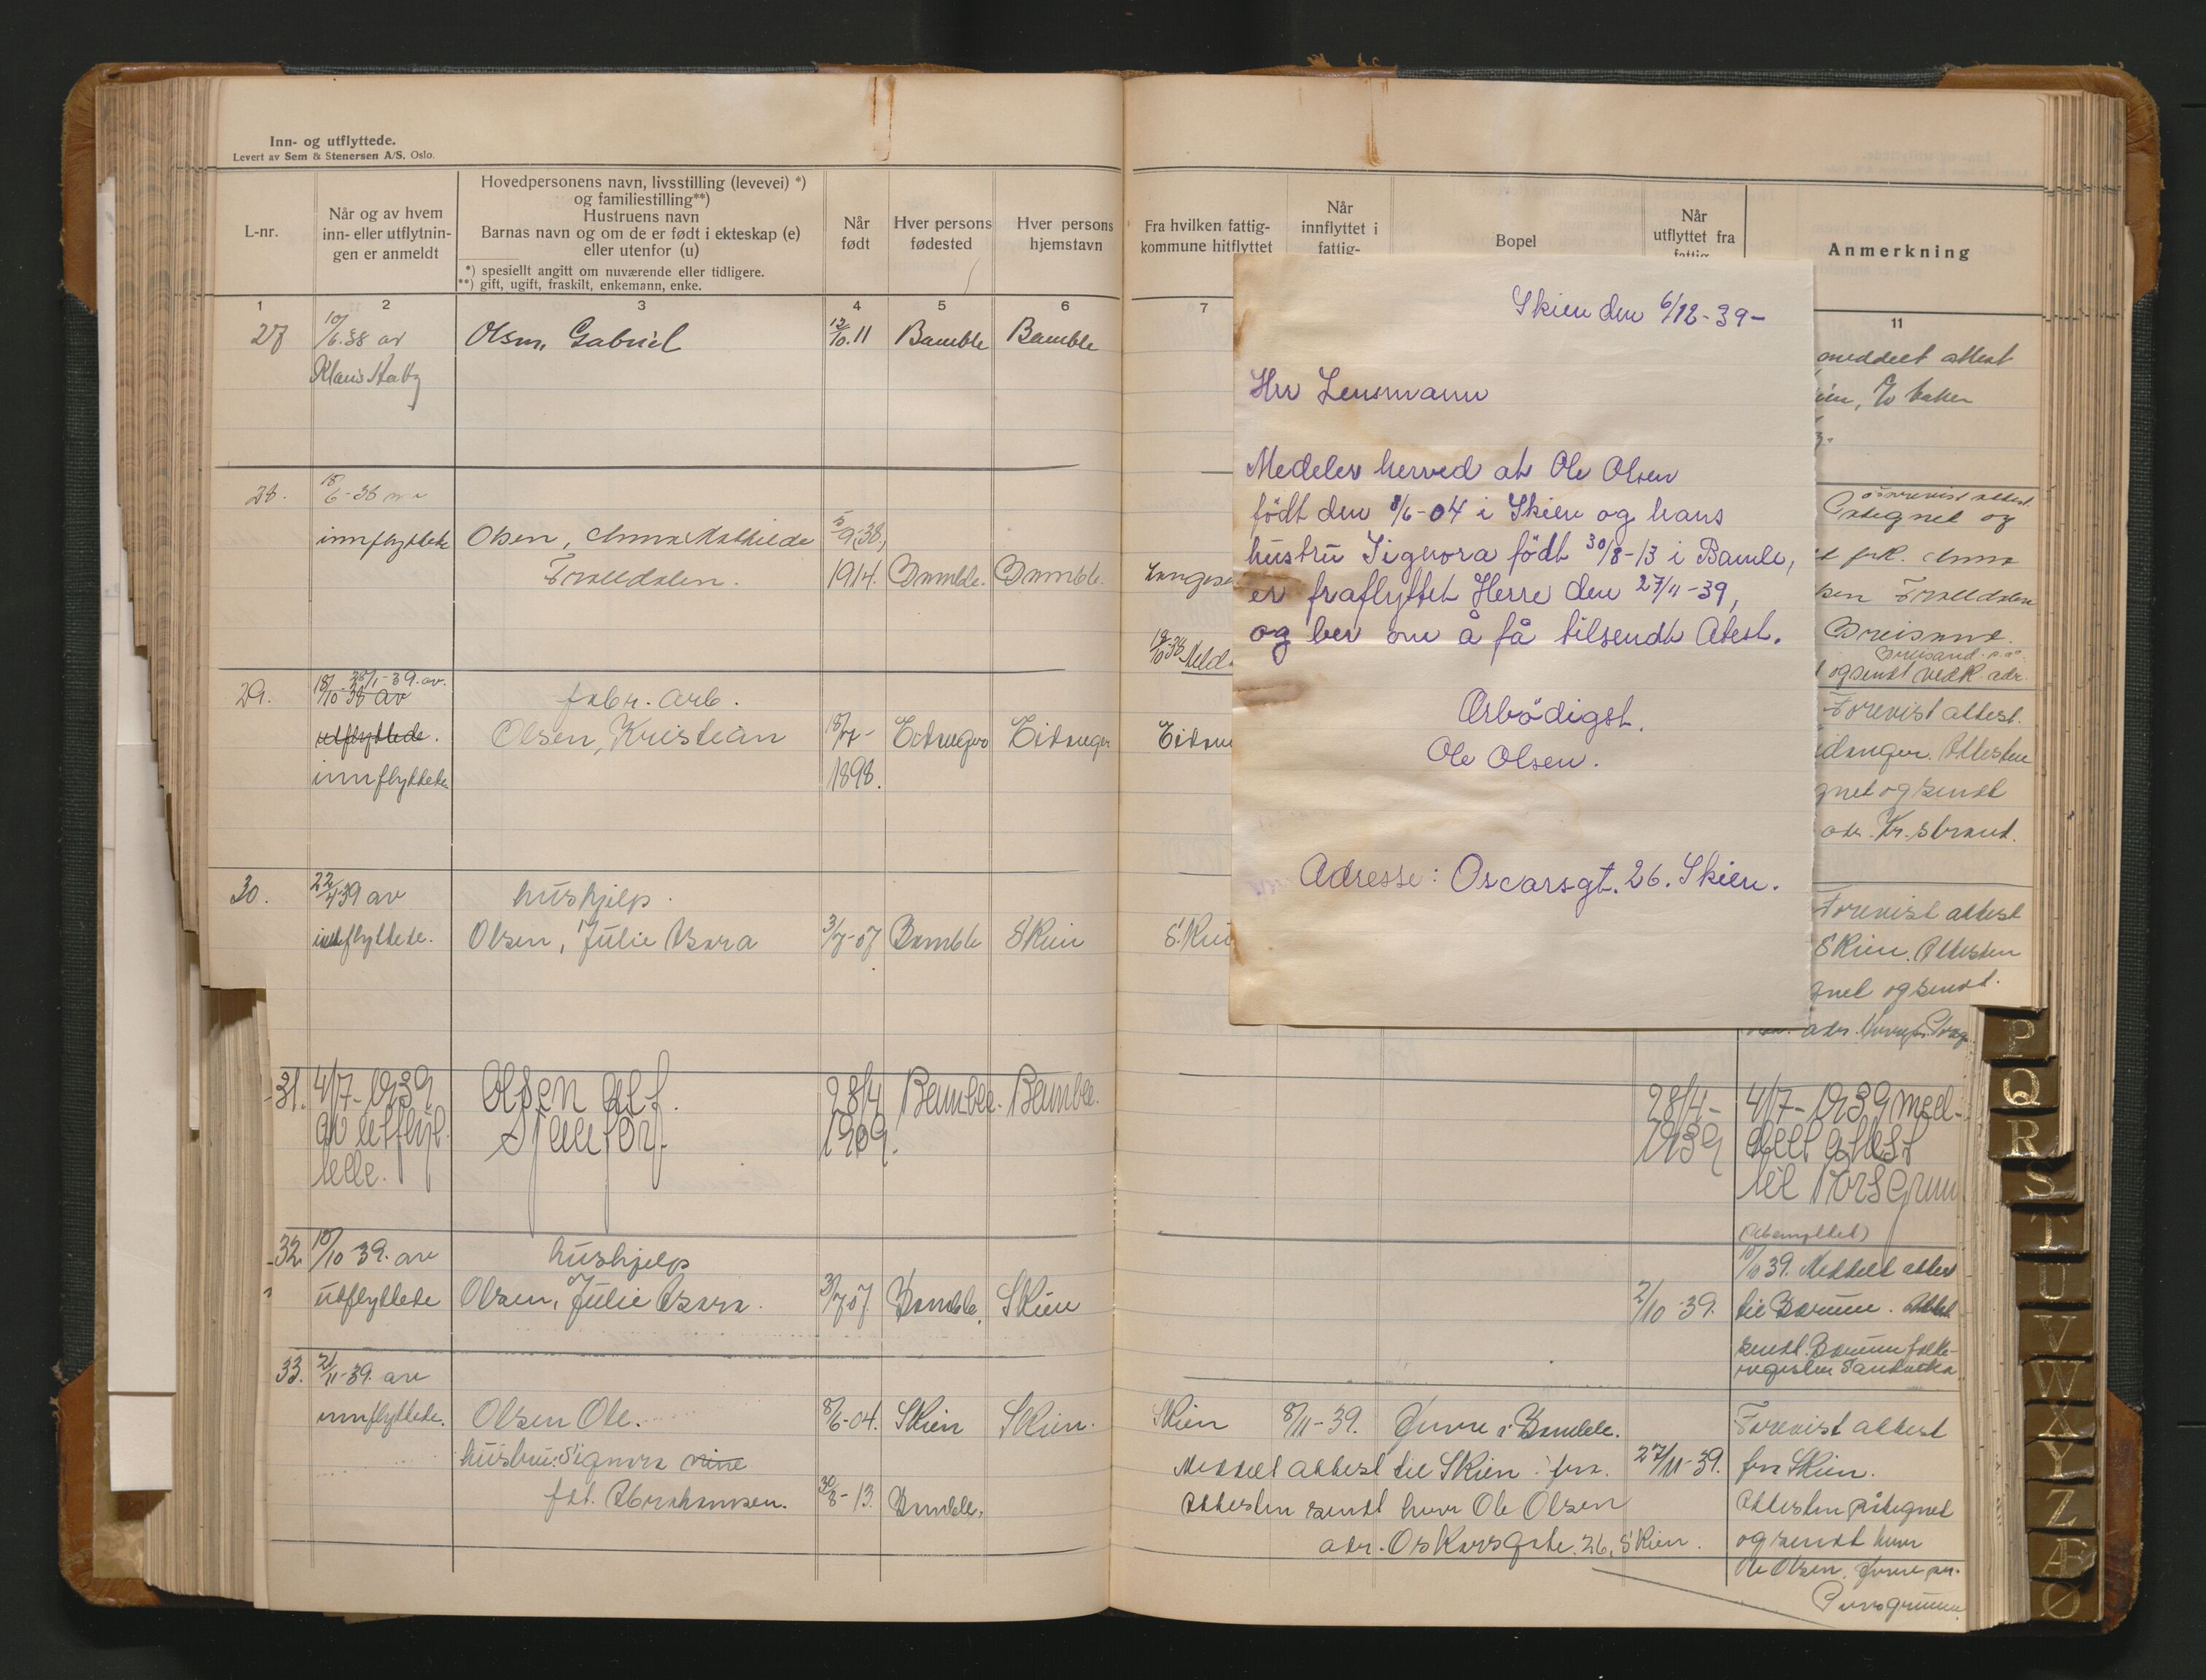 Inn- og utflyttede.
Levert av Sem & Stenersen A/S, Oslo.
L-nr.
Når og av hvem
inn- eller utflytnin-
gen er anmeldt
Hovedpersonens navn, livsstilling (levevei) *)
og familiestilling**)
Hustruens navn
Barnas navn og om de er født i ekteskap (e)
eller utenfor (u)
*) spesiellt angitt om nuværende eller tidligere.
**) gift, ugift, fraskilt, enkemann, enke.
Når
født
Hver persons
fødested
Hver persons
hjemstavn
1 2 3 4 5 6
27 10/6.38 av Olsen, Gabriel 12/10.11 Bamble Bamble
Klaus
28. 18/6-38
innflyttede Olsen, Anna Mathilde 5/9(38)
Tralldalen. 1914. Bamble. Bamble.
29. 18/10-38 av 25/1-39. av. fabr. arb.
utflyttede. Olsen, Kristian 18/7- Eidanger Eidanger
innflyttede 1898.
30. 22/4-39 av hushjelp.
innflyttede. Olsen, Julie Asora 3/7-07 Bamble Skien
31. 4/7-1939 Olsen Alf. 28/4 Bamble. Bamble.
av utflyt- 1909.
tede.
32. 10/10 39. av hushjelp
utflyttede Olsen, Julie Asora. 3/7 07. Bamble. Skien
33. 21/11-39. av
innflyttede. Olsen Ole. 8/6-04. Skien Skien.
hustru: Signora
født. Abrahamsen. 30/8-13. Bamble.
Fra hvilken fattig-
kommune hitflyttet
Når
innflyttet i
fattig-
Bopel
Når
utflyttet fra
fattig-
Anmerkning
7 11
meddelt attest
påtegnet og
frk. Anna
Tralldalen
og sendt vedk. adr.
Forevist attest.
Attesten
og sendt
adr. Kr. Strand.
Forevist attest
Skien. Attesten
og sendt.
28/4- 4/7-1939 med-
1939 delt attest
til Porsgrunn
10/10 39. Meddelt attest
2/10-39. til Bærum. Attest
sendt Bærum folke-
register Sandvika
Skien 8/11-39. Herre i Bamble. Forevist attest
Meddelt attest til Skien fra. 27/11-39. fra Skien.
Attesten sendt herr Ole Olsen Attesten påtegnet
adr. Oskarsgate. 26, Skien. og sendt herr
Ole Olsen. Herre pr.
Porsgrunn.
Skien den 6/12-39-
Hrr Lensmann
Medeler herved at Ole Olsen
födt den 8/6-04 i Skien og hans
hustru Signora födt 30/8-13 i Bamle,
er fraflyttet Herre den 27/11-39,
og ber om å få tilsendt Atest.
Ærbödigst.
Ole Olsen.
Adresse: Oscarsgt. 26. Skien.
P
Q
R
S
T
U
V
W
X
Y
Z
Æ
Ø